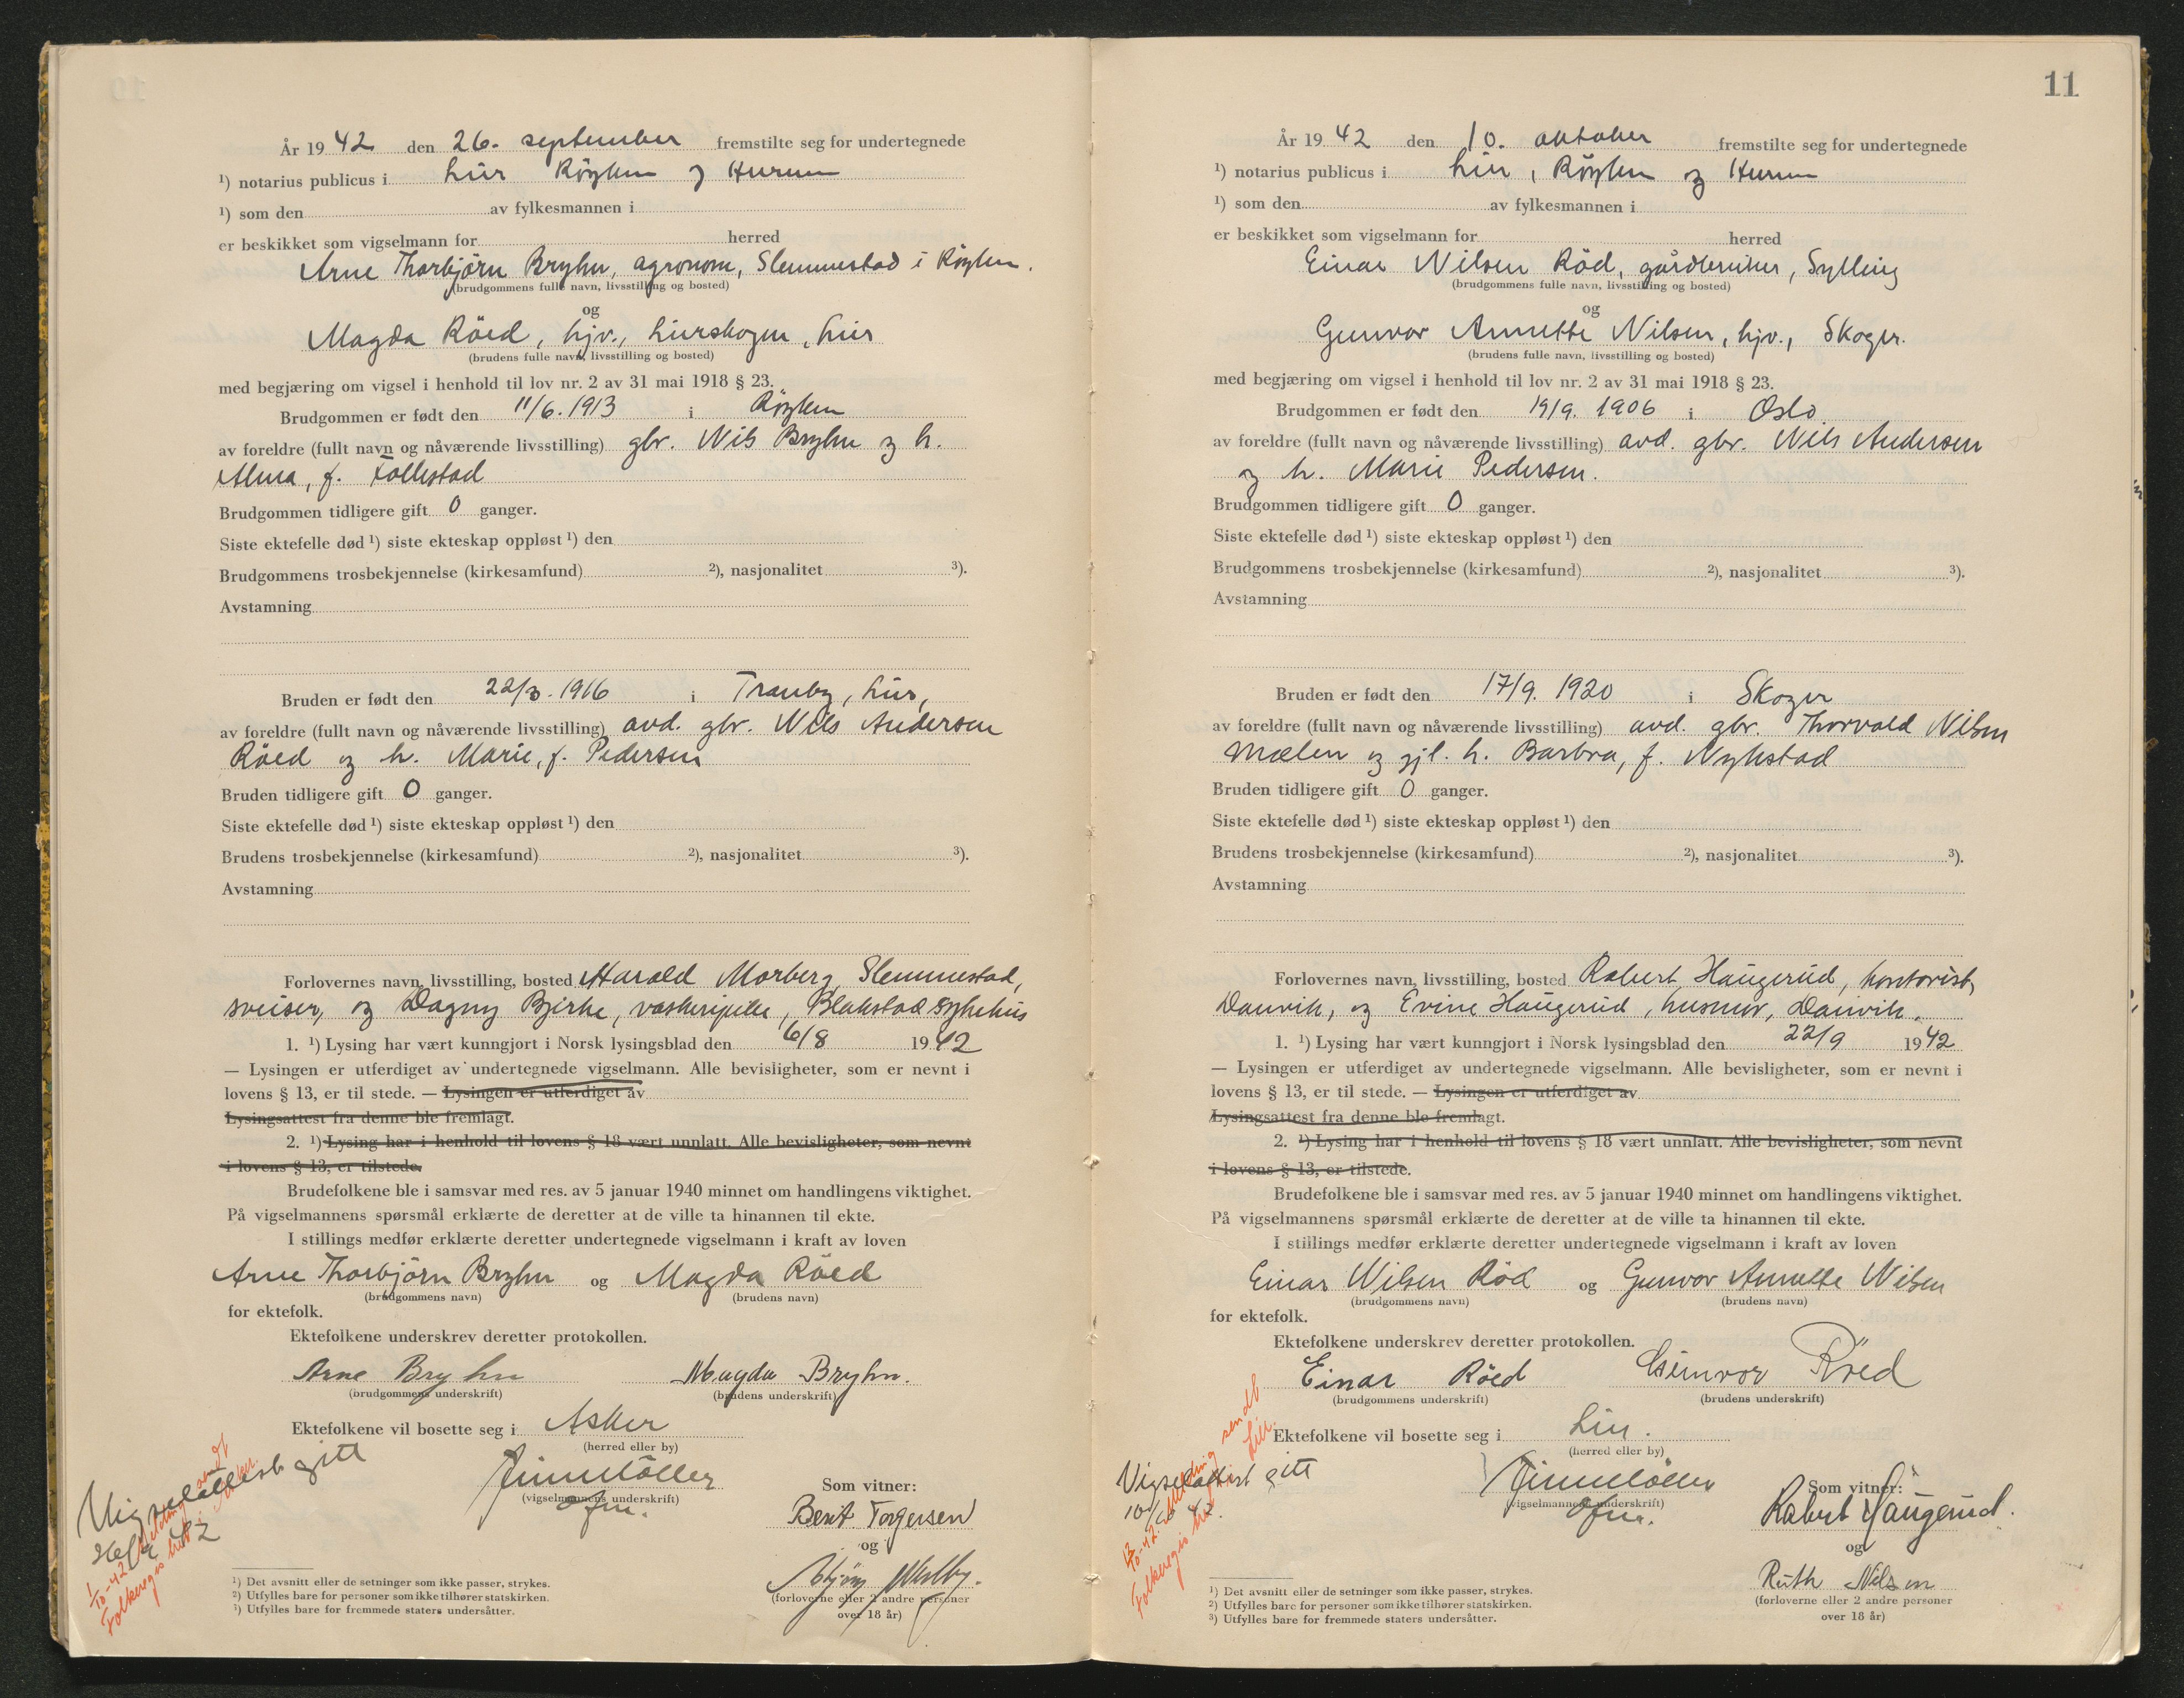 År 1942 den 26. september fremstilte seg for undertegnede
¹) notarius publicus i Lier Röyken og Hurum
¹) som den av fylkesmannen i
er beskikket som vigselmann for herred
Arne Thorbjörn Bryhn, agronom, Slemmestad i Röyken.
(brudgommens fulle navn, livsstilling og bosted)
og
Magda Röed, hjv., Lierskogen, Lier
(brudens fulle navn, livsstilling og bosted)
med begjæring om vigsel i henhold til lov nr. 2 av 31 mai 1918 § 23.
Brudgommen er født den 11/6. 1913 i Röyken
av foreldre (fullt navn og nåværende livsstilling) gbr. Nils Bryhn og h.
Alma, f. Follestad
Brudgommen tidligere gift 0 ganger.
Siste ektefelle død ¹) siste ekteskap oppløst ¹) den
Brudgommens trosbekjennelse (kirkesamfund) ²), nasjonalitet ³).
Avstamning
Bruden er født den 22/3. 1916 i Tranby, Lier,
av foreldre (fullt navn og nåværende livsstilling) avd. gbr. Nils Andersen
Röed og h. Marie, f. Pedersen
Bruden tidligere gift 0 ganger.
Siste ektefelle død ¹) siste ekteskap oppløst ¹) den
Brudens trosbekjennelse (kirkesamfund) ²), nasjonalitet ³).
Avstamning
Forlovernes navn, livsstilling, bosted Harald Morberg, Slemmestad,
sveiser, og Dagny Bjerke, vaskeripike, Blakstad sykehus
1. ¹) Lysing har vært kunngjort i Norsk lysingsblad den 6/8 1942
— Lysingen er utferdiget av undertegnede vigselmann. Alle bevisligheter, som er nevnt i
lovens § 13, er til stede. — Lysingen er utferdiget av
Lysingsattest fra denne ble fremlagt.
2. ¹) Lysing har i henhold til lovens § 18 vært unnlatt. Alle bevisligheter, som nevnt
i lovens § 13, er tilstede.
Brudefolkene ble i samsvar med res. av 5 januar 1940 minnet om handlingens viktighet.
På vigselmannens spørsmål erklærte de deretter at de ville ta hinannen til ekte.
I stillings medfør erklærte deretter undertegnede vigselmann i kraft av loven
Arne Thorbjörn Bryhn og Magda Röed
(brudgommens navn) (brudens navn)
for ektefolk.
Ektefolkene underskrev deretter protokollen.
Arne Bryhn Magda Bryhn.
(brudgommens underskrift) (brudens underskrift)
Ektefolkene vil bosette seg i Asker
(herred eller by)
(vigselmannens underskrift)
Som vitner:
Berit Torgersen
og
(forloverne eller 2 andre personer
over 18 år)
Vigselattest gitt
26/9 42
1/10-42 melding sendt
Folkeregisteret i Asker.
¹) Det avsnitt eller de setninger som ikke passer, strykes.
²) Utfylles bare for personer som ikke tilhører statskirken.
³) Utfylles bare for fremmede staters undersåtter.
11
År 1942 den 10. oktober fremstilte seg for undertegnede
¹) notarius publicus i Lier, Röyken og Hurum
¹) som den av fylkesmannen i
er beskikket som vigselmann for herred
Einar Nilsen Röd, gårdbruker, Sylling
(brudgommens fulle navn, livsstilling og bosted)
og
Gunvor Annette Nilsen, hjv., Skoger.
(brudens fulle navn, livsstilling og bosted)
med begjæring om vigsel i henhold til lov nr. 2 av 31 mai 1918 § 23.
Brudgommen er født den 19/9. 1906 i Oslo
av foreldre (fullt navn og nåværende livsstilling) avd. gbr. Nils Andersen
og h. Marie Pedersen.
Brudgommen tidligere gift 0 ganger.
Siste ektefelle død ¹) siste ekteskap oppløst ¹) den
Brudgommens trosbekjennelse (kirkesamfund) ²), nasjonalitet ³).
Avstamning
Bruden er født den 17/9. 1920 i Skoger
av foreldre (fullt navn og nåværende livsstilling) avd. gbr. Thorvald Nilsen
Mælen og gjl. h. Barbra, f. Nykstad
Bruden tidligere gift 0 ganger.
Siste ektefelle død ¹) siste ekteskap oppløst ¹) den
Brudens trosbekjennelse (kirkesamfund) ²), nasjonalitet ³).
Avstamning
Forlovernes navn, livsstilling, bosted Robert Haugerud, kontorist,
Danvik, og Evine Haugerud, husmor, Danvik.
1. ¹) Lysing har vært kunngjort i Norsk lysingsblad den 22/9 1942
— Lysingen er utferdiget av undertegnede vigselmann. Alle bevisligheter, som er nevnt i
lovens § 13, er til stede. — Lysingen er utferdiget av
Lysingsattest fra denne ble fremlagt.
2. ¹) Lysing har i henhold til lovens § 18 vært unnlatt. Alle bevisligheter, som nevnt
i lovens § 13, er tilstede.
Brudefolkene ble i samsvar med res. av 5 januar 1940 minnet om handlingens viktighet.
På vigselmannens spørsmål erklærte de deretter at de ville ta hinannen til ekte.
I stillings medfør erklærte deretter undertegnede vigselmann i kraft av loven
Einar Nilsen Röd og Gunvor Annette Nilsen
(brudgommens navn) (brudens navn)
for ektefolk.
Ektefolkene underskrev deretter protokollen.
Einar Röed Gunvor Röed
(brudgommens underskrift) (brudens underskrift)
Ektefolkene vil bosette seg i Lier.
(herred eller by)
(vigselmannens underskrift)
Som vitner:
Robert Haugerud.
og
Ruth Nilsen
(forloverne eller 2 andre personer
over 18 år)
Vigselattest gitt
10/10 42.
12/10-42. Melding sendt
Folkeregisteret i Lier.
¹) Det avsnitt eller de setninger som ikke passer, strykes.
²) Utfylles bare for personer som ikke tilhører statskirken.
³) Utfylles bare for fremmede staters undersåtter.